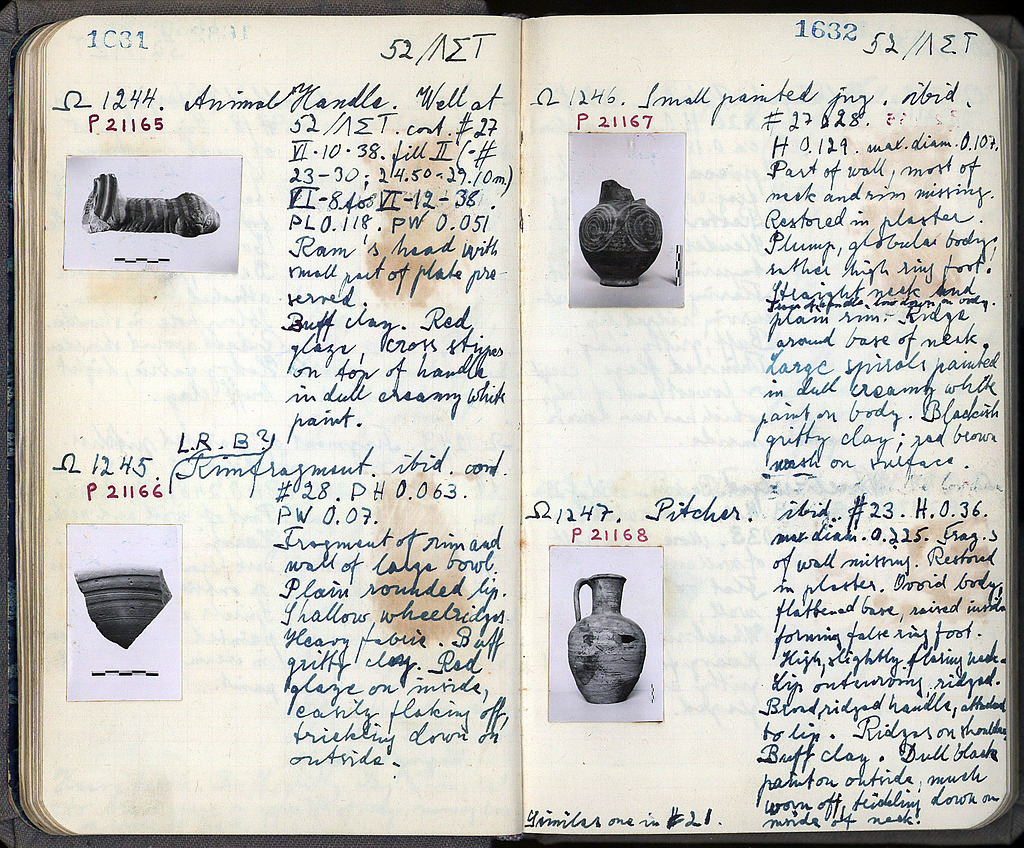 1631
52/ΛΣΤ
Ω 1244. Animal Handle. Well at
P 21165
52/ΛΣΤ. cont. #27
VI-10-38. fill II (-#
23-30; 24.50-29.10m)
VI-8 to VI-12-38.
PL 0.118. PW 0.051.
Ram's head with
small part of plate pre-
served.
Buff clay. Red
glaze, cross stripes
on top of handle
in dull creamy white
paint.
L.R.B?
Ω 1245. Rimfragment. ibid. cont.
P 21166
#28. PH 0.063.
PW 0.07.
Fragment of rim and
wall of large bowl.
Plain rounded lip.
Shallow wheelridges.
Heavy fabric. Buff
gritty clay. Red
glaze on inside,
easily flaking off,
trickling down on
outside.-
1632
52/ΛΣΤ
Ω 1246. Small painted jug. ibid.
P 21167
#27 & 28.
H 0.129. max. diam. 0.107.
Part of wall, most of
neck and rim missing.
Restored in plaster.
Plump, globular body,
rather high ring foot.
Straight neck and
low down on body.
plain rim. Ridge
around base of neck.
Large spirals painted
in dull creamy white
paint on body. Blackish
gritty clay; red brown
wash on surface.
Ω 1247. Pitcher. ibid. #23. H. 0.36.
P 21168
max diam. 0.225. Frag.s
of wall missing. Restored
in plaster. Ovoid body,
flattened base, raised inside
forming false ring foot.
High, slightly flaring neck.
Lip outcurving, ridged.
Broad, ridged handle, attached
to lip. Ridges on shoulder.
Buff clay. Dull black
paint on outside, much
worn off, trickling down on
inside of neck.
Similar one in #21.